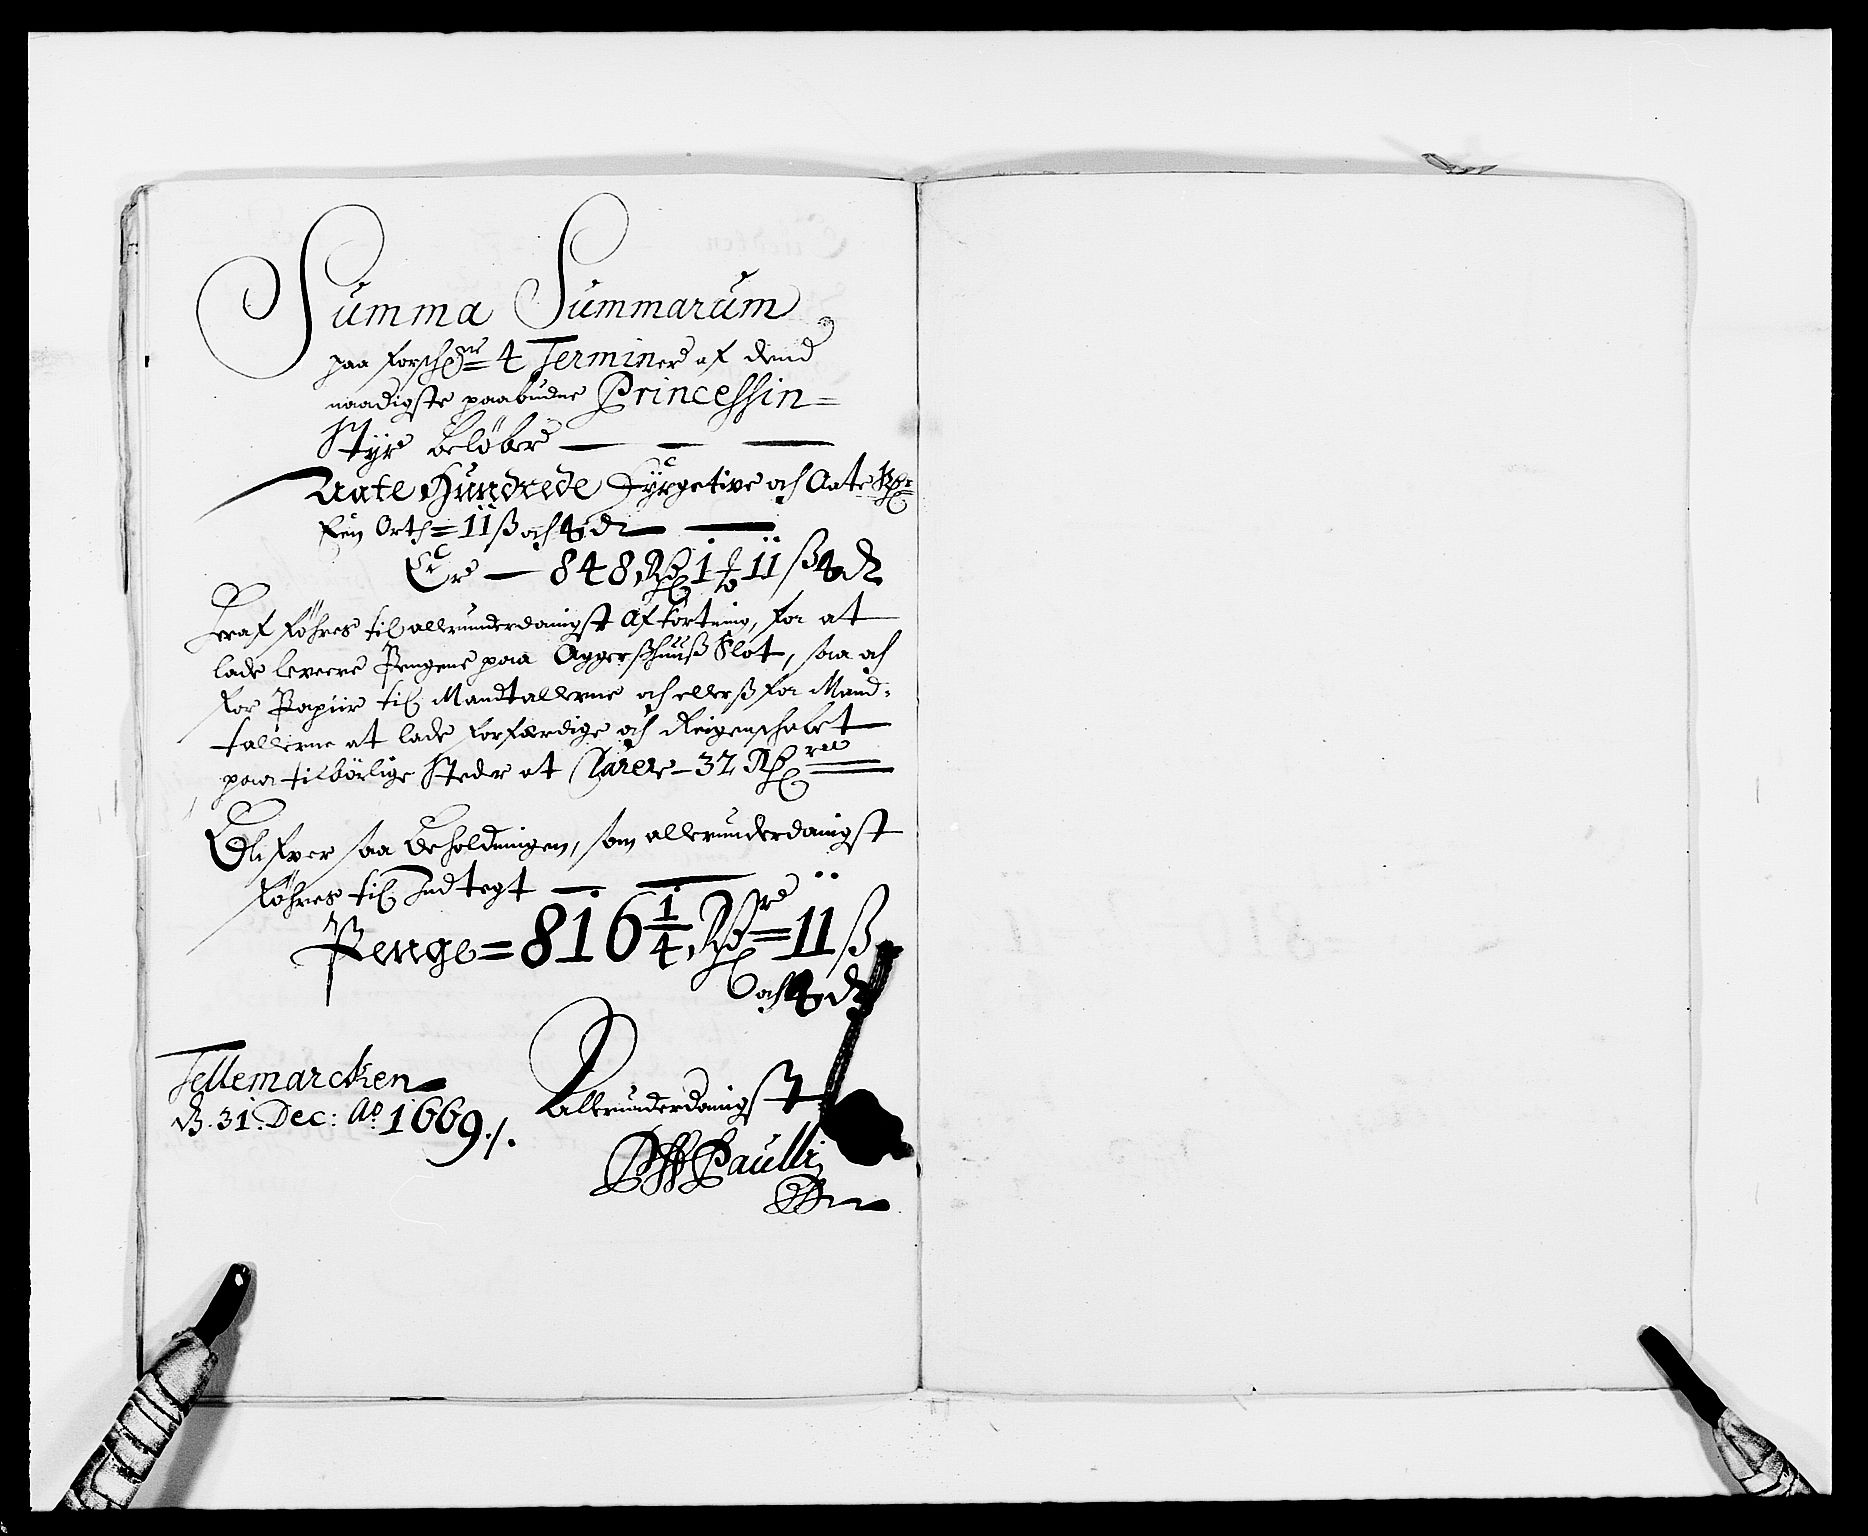 Summa Summarum
paa forschne 4 Terminer af dend
naadigste paabudne Princessin=
Styr beløber
Aate Hundrede Fyrgetive och Aate Rdr
Een Orth = 11 ß och 4 d
Er — 848 Rd 1 ort 11 ß 4 d
Heraf føhres til allerunderdanigst Afkortning, for at
lade levere Pengene paa Aggerßhuuß Slot, saa och
for Papiir til Mandtallerne och ellerß for Mand=
tallerne at lade forfærdige och Reigenschabet
paa tilbørlige Steder at Clarere – 32 Rdr
Blifver saa Beholdningen, som allerunderdanigst
føhres til Indtegt
Penge = 816 1/4 Rdr = 11 ß
och 4 d
Tellemarcken
d. 31. Dec: Ao 1669 ./.
Allerunderdanigst
Paulli